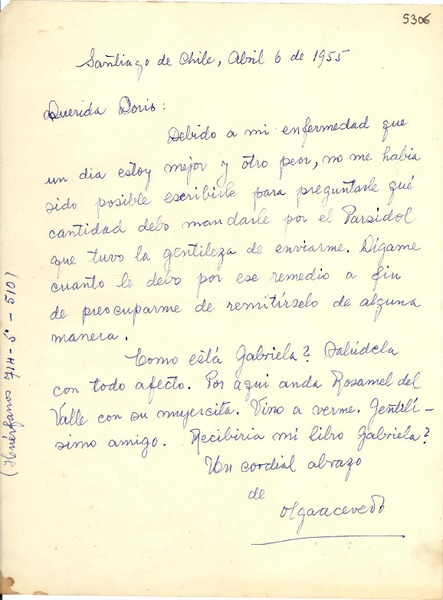 5306
Santiago de Chile, Abril 6 de 1955
Querida Doris:
Debido a mi enfermedad que
un dia estoy mejor y otro peor, no me habia
sido posible escribirle para preguntarle qué
cantidad debo mandarle por el Parsidol
que tuvo la gentileza de enviarme. Dígame
cuanto le debo por ese remedio a fin
de preocuparme de remitírselo de alguna
manera.
Como está Gabriela? Salúdela
con todo afecto. Por aqui anda Rosamel del
Valle con su mujercita. Vino a verme. Gentilí-
simo amigo. Recibiria mi libro Gabriela?
Un cordial abrazo
de
Olga Acevedo
(Huérfanos 714 - 5° - 510)